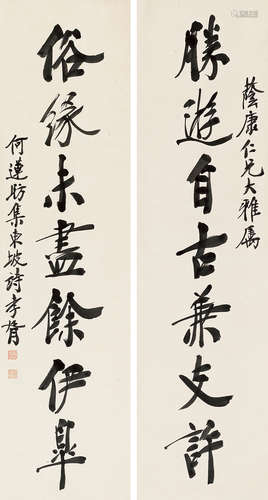 蔭康仁兄大雅屬
勝遊自古兼支許
俗緣未盡餘伊皋
何蓮舫集東坡詩 孝胥